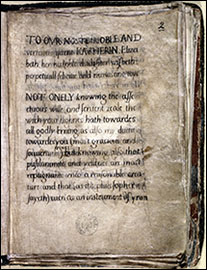 TO OVR MOSTE NOBLE AND
vertuous quene KATHERIN, Eliza
beth her humble daughter wisheth
perpetuall felicitie and everlasting ioye
NOT ONELY knowing the affe
ctuous wille and fervent zeale the
wich your highnes hath towardes
all godly lerning as also my duetie
towardes you (most gracious and
souverayne princes) but knowing also that
pusilanimite and ydlenes are most
repugnante unto a reasonable crea
ture and that (as the philosopher
sayeth) even as an instrument of yron